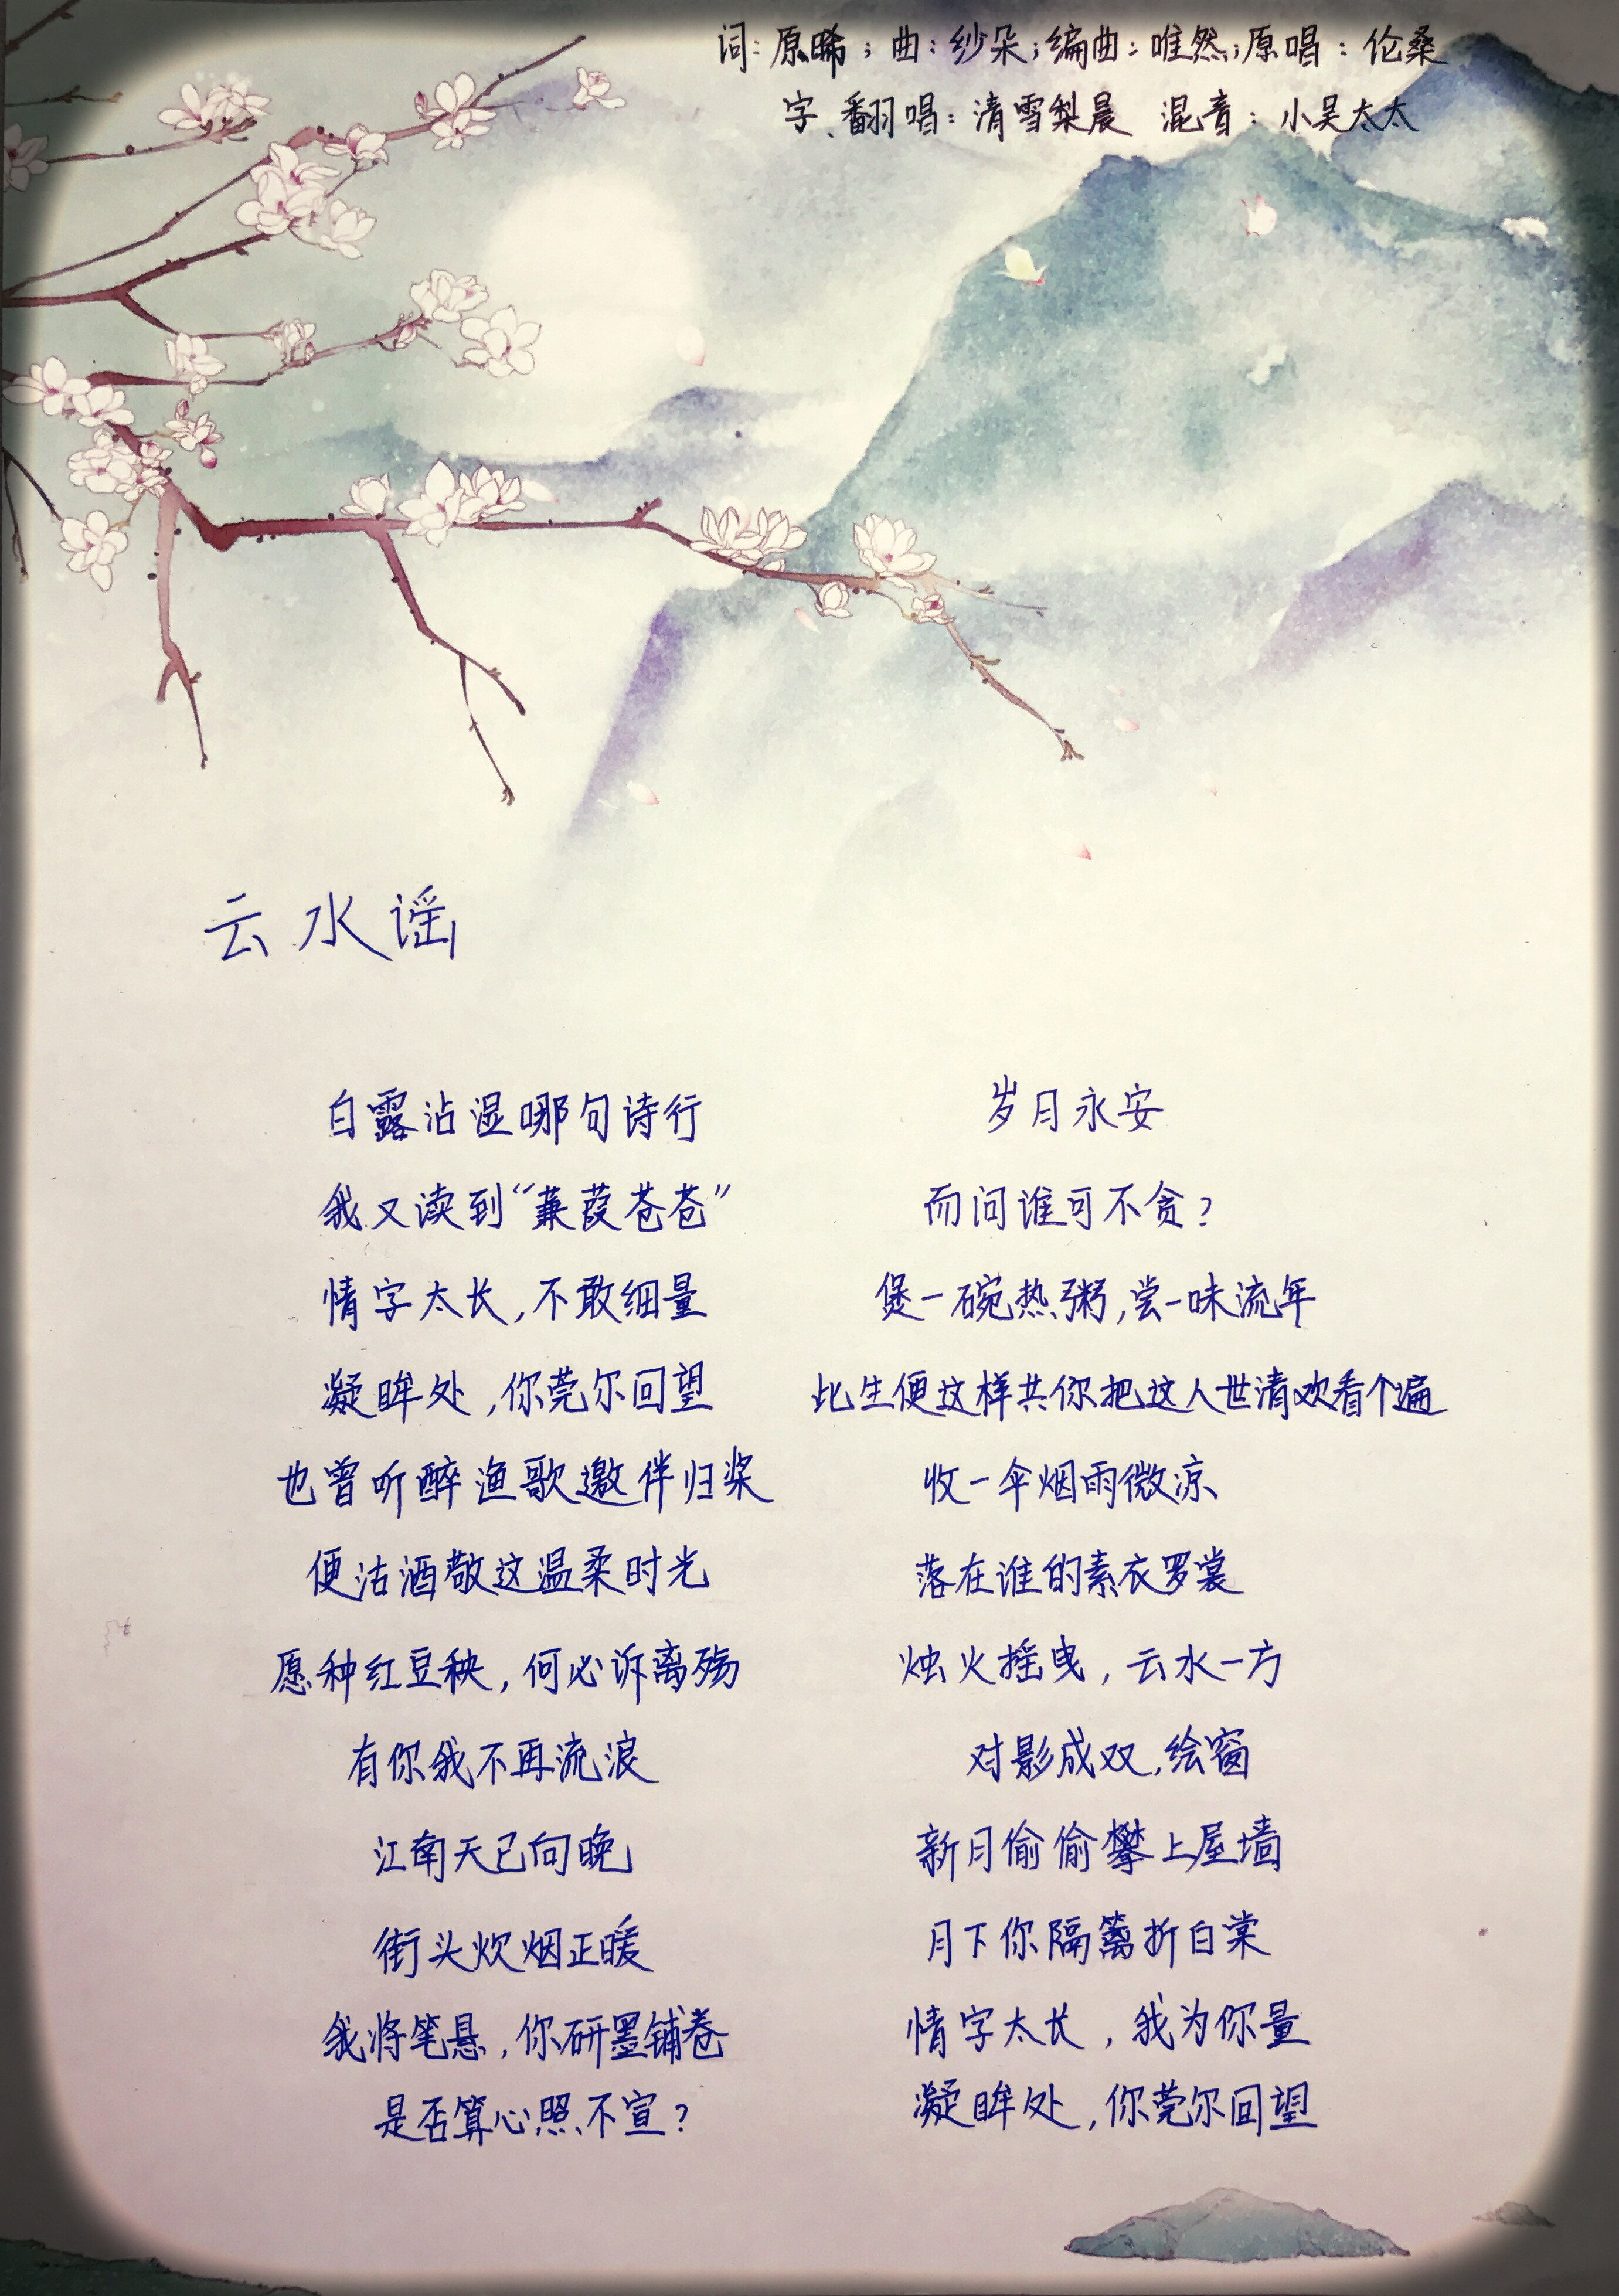 词：原晞；曲：纱朵；编曲：唯然；原唱：伦桑
字、翻唱：清雪梨晨 混音：小吴太太
云水谣
白露沾湿哪句诗行
我又读到“蒹葭苍苍”
情字太长，不敢细量
凝眸处，你莞尔回望
也曾听醉渔歌邀伴归桨
便沽酒敬这温柔时光
愿种红豆秧，何必诉离殇
有你我不再流浪
江南天已向晚
街头炊烟正暖
我将笔悬，你研墨铺卷
是否算心照不宣？
岁月永安
而问谁可不贪？
煲一碗热粥，尝一味流年
比生便这样共你把这人世清欢看个遍
收一伞烟雨微凉
落在谁的素衣罗裳
烛火摇曳，云水一方
对影成双，绘窗
新月偷偷攀上屋墙
月下你隔篱折白棠
情字太长，我为你量
凝眸处，你莞尔回望